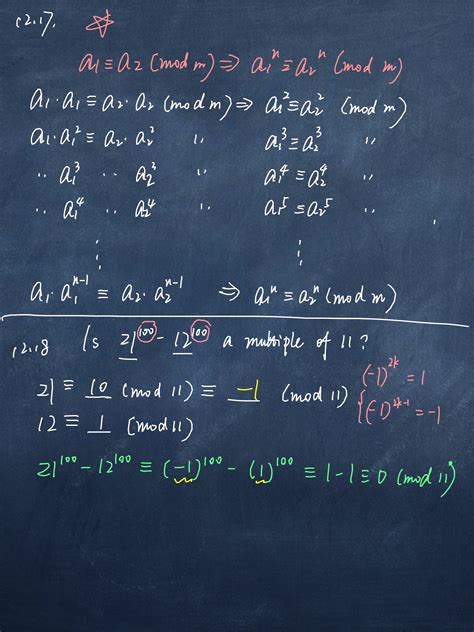 12.17. ☆
a₁ ≡ a₂ (mod m) ⇒ a₁ⁿ ≡ a₂ⁿ (mod m)
a₁·a₁ ≡ a₂·a₂ (mod m) ⇒ a₁² ≡ a₂² (mod m)
a₁·a₁² ≡ a₂·a₂² " a₁³ ≡ a₂³ "
" a₁³ " a₂³ " a₁⁴ ≡ a₂⁴ "
" a₁⁴ " a₂⁴ " a₁⁵ ≡ a₂⁵ "
⋮ ⋮
a₁·a₁ⁿ⁻¹ ≡ a₂·a₂ⁿ⁻¹ ⇒ a₁ⁿ ≡ a₂ⁿ (mod m)
12.18 Is 21¹⁰⁰ - 12¹⁰⁰ a multiple of 11?
21 ≡ 10 (mod 11) ≡ -1 (mod 11)
12 ≡ 1 (mod 11)
{(-1)²ᵏ = 1
(-1)²ᵏ⁻¹ = -1
21¹⁰⁰ - 12¹⁰⁰ ≡ (-1)¹⁰⁰ - (1)¹⁰⁰ ≡ 1 - 1 ≡ 0 (mod 11)